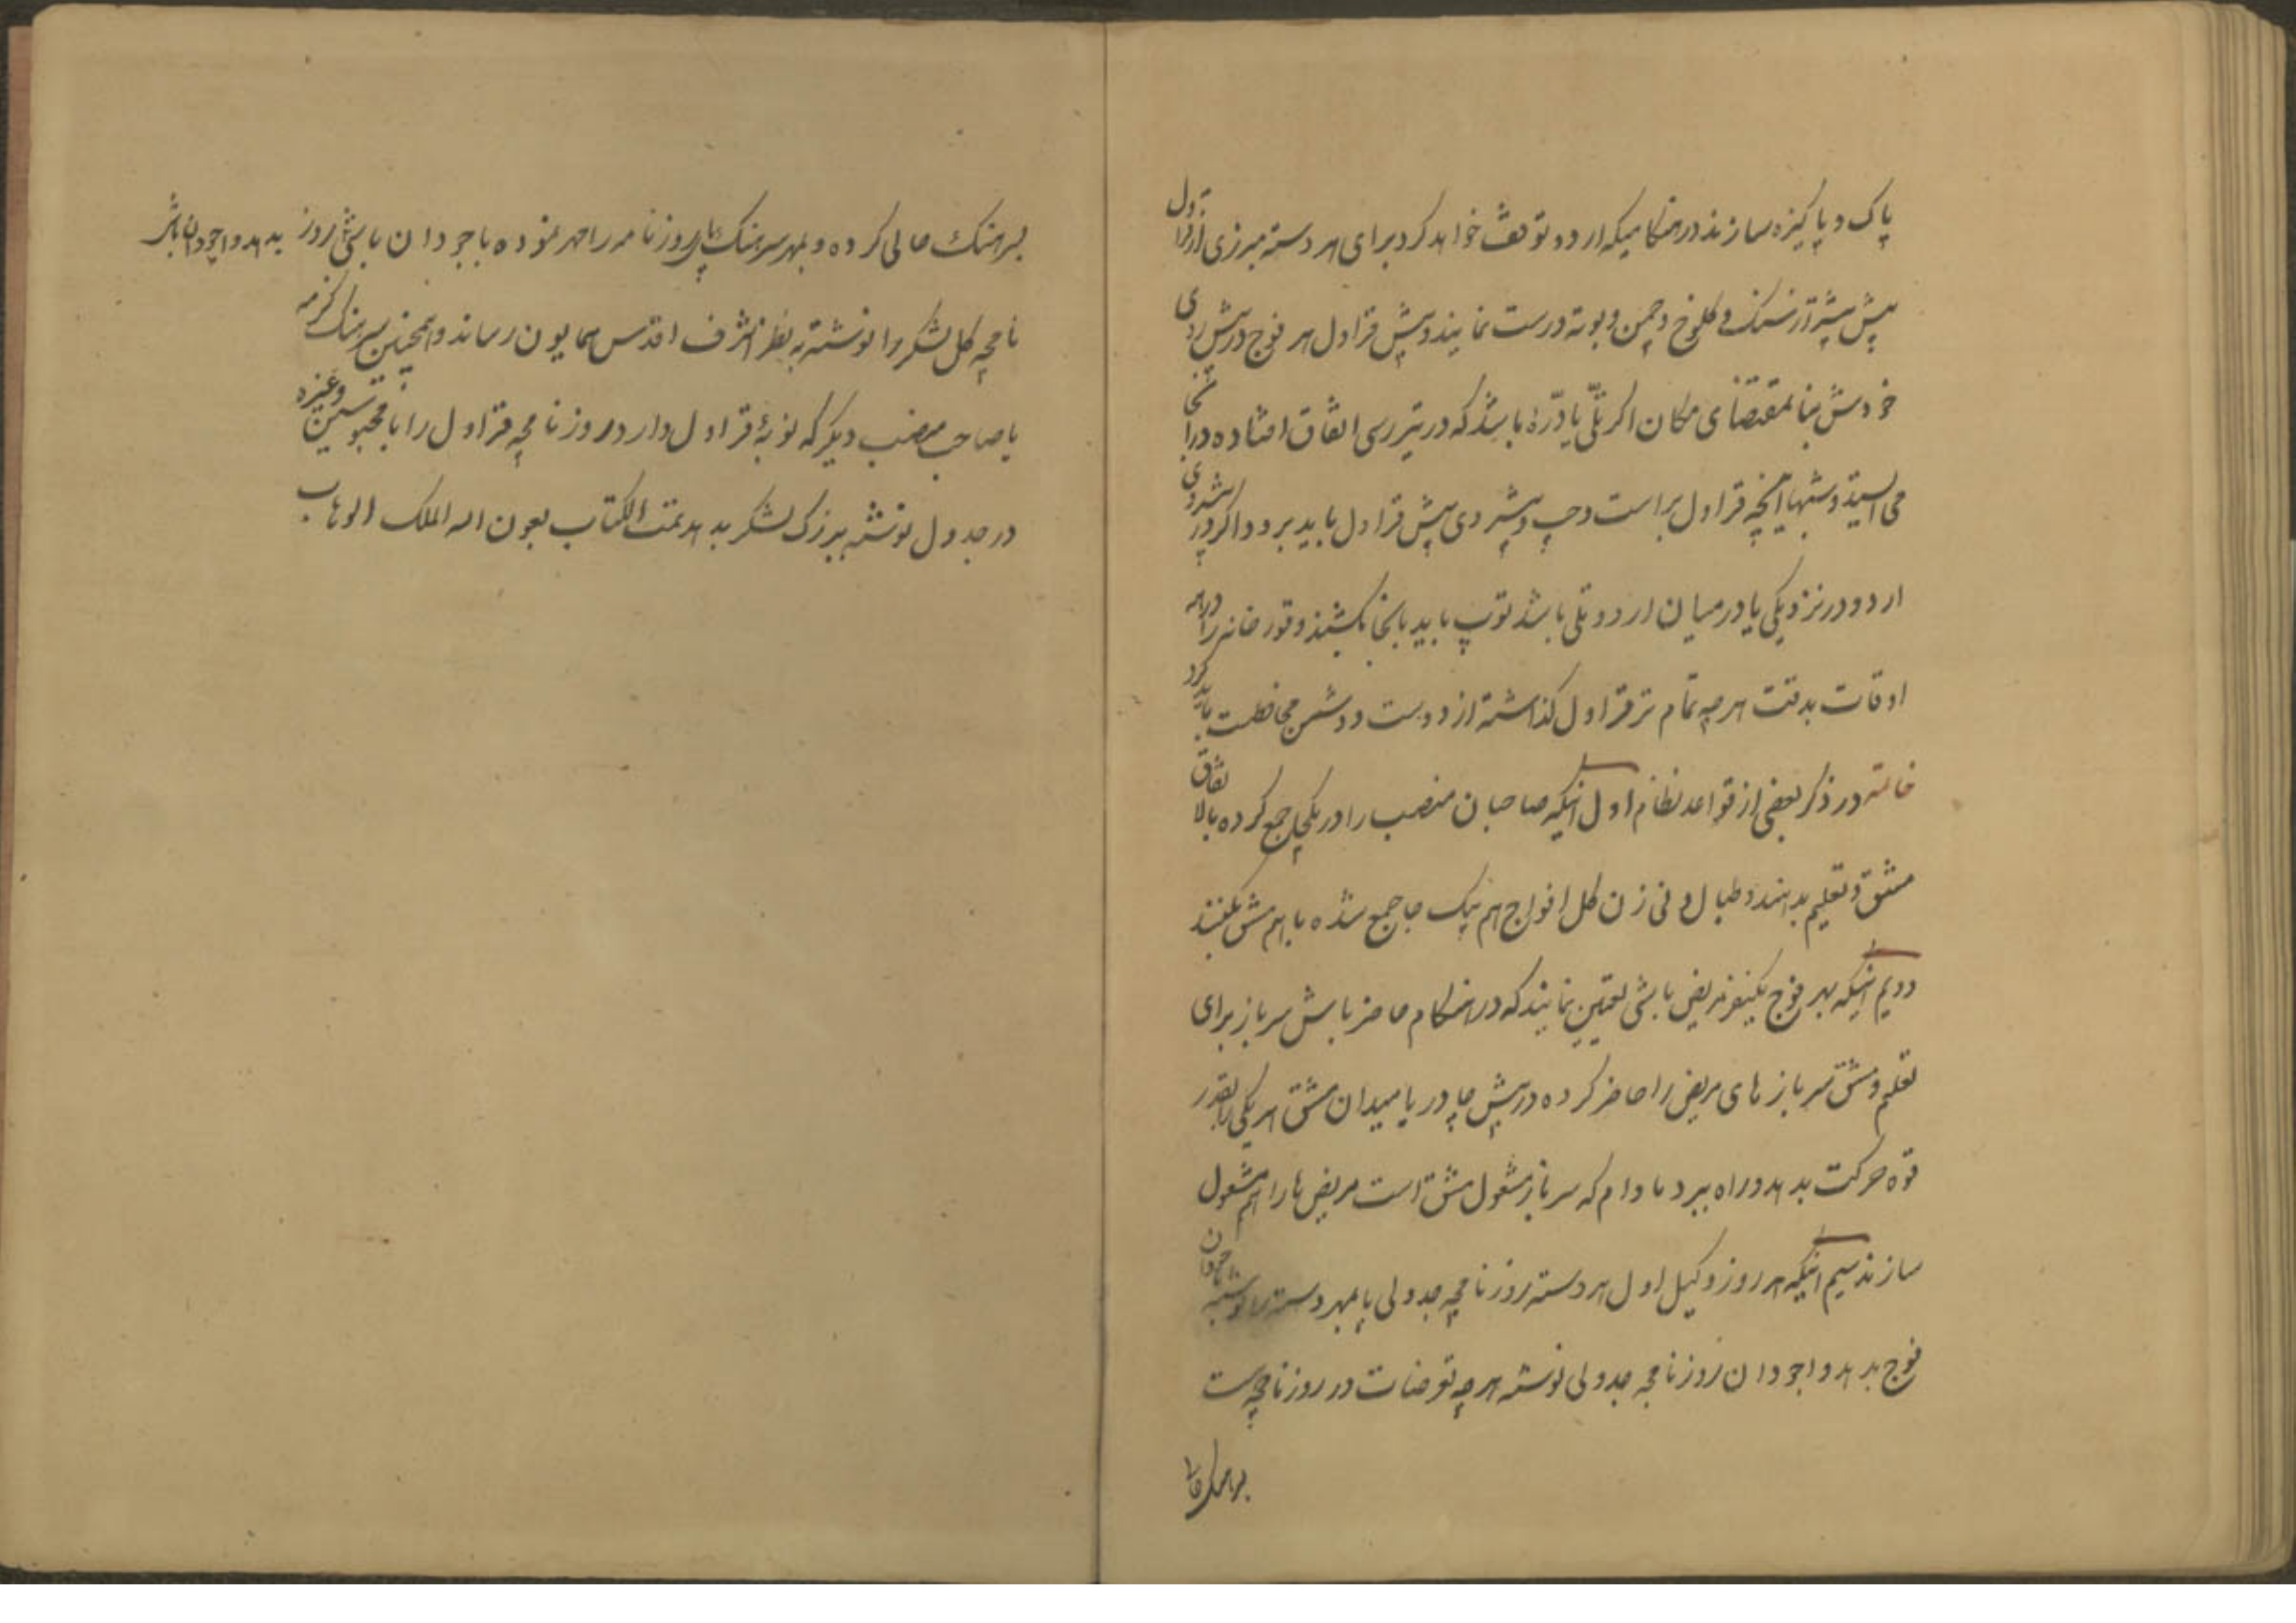 پاک و پاکیزه سازند در هنگامیکه اردو توقف خواهد کرد برای هر دسته مبرزی از قراول
پیش پیشتر از سنگ و کلوخ و چمن و بوته درست نمایند و پیش قراول هر فوج در پیش روی
خودش بنا بمقتضای مکان اگر تلّی یا درّۀ باشد که در تیررس اتفاق افتاده در آنجا
می ایستد و شبها آنچه قراول براست و چپ و پیشروی پیش قراول باید برود و اگر در پیشروی
اردو در نزدیکی یا در میان اردو تلی باشد توپ باید بانجا بکشند و قورخانه را در همه
اوقات بدقت هرچه تمام تر قراول گذاشته از دوست و دشمن محافظت باید کرد
خاتمه در ذکر بعضی از قواعد نظام اول اینکه صاحبان منصب را در یکجا جمع کرده بالاتفاق
مشق و تعلیم بدهند و طبال و نی زن کل افواج هم بیک جا جمع شده با هم مشق بکنند
دویم اینکه بهر فوج یکنفر مریض باشی تعیین نمایند که در هنگام حاضر باش سرباز برای
تعلیم و مشق سربازهای مریض را حاضر کرده در پیش چادر یا میدان مشق هر یکی را بقدر
قوه حرکت بدهد و راه ببرد مادام که سرباز مشغول مشق است مریض ها را هم مشغول
سازند سیم اینکه هر روز وکیل اول هر دسته روزنامچه جدولی پا بمهر دسته را نوشته باجودان
فوج بدهد و اجودان روزنامچه جدولی نوشته هرچه توضات در روزنامچه است
بسرهنگ حالی کرده و بمهر سرهنگ پای روزنامه را مهر نموده باجودان باشی روز بدهد و اجودان باشی
نامچه کل لشکر را نوشته به نظر اشرف اقدس همایون رساند و همچنین سرهنگ کزمه
یا صاحب منصب دیگر که نوبۀ قراول دارد روزنامچه قراول را با محبوسین و غیره
در جدول نوشته ببزرک لشکر بدهد تمت الکتاب بعون اله الملک الوهاب